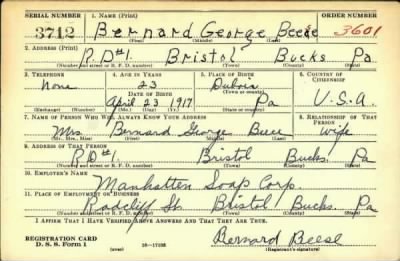 SERIAL NUMBER 1. NAME (Print) ORDER NUMBER
3712 Bernard George Beese 3601
(First) (Middle) (Last)
2. ADDRESS (Print)
R.D#1. Bristol Bucks Pa
(Number and street or R. F. D. number) (Town) (County) (State)
3. TELEPHONE 4. AGE IN YEARS 5. PLACE OF BIRTH 6. COUNTRY OF CITIZENSHIP
None 23 Dubois
DATE OF BIRTH (Town or county)
April 23 1917 Pa U.S.A.
(Exchange) (Number) (Mo.) (Day) (Yr.) (State or country)
7. NAME OF PERSON WHO WILL ALWAYS KNOW YOUR ADDRESS 8. RELATIONSHIP OF THAT PERSON
Mrs. Bernard George Beese Wife
(Mr., Mrs., Miss) (First) (Middle) (Last)
9. ADDRESS OF THAT PERSON
R.D#1. Bristol Bucks. Pa
(Number and street or R. F. D. number) (Town) (County) (State)
10. EMPLOYER'S NAME
Manhatten Soap Corp.
11. PLACE OF EMPLOYMENT OR BUSINESS
Radcliff St Bristol Bucks. Pa
(Number and street or R. F. D. number) (Town) (County) (State)
I AFFIRM THAT I HAVE VERIFIED ABOVE ANSWERS AND THAT THEY ARE TRUE.
REGISTRATION CARD
D. S. S. Form 1 (over) 16-17105 Bernard Beese
(Registrant's signature)